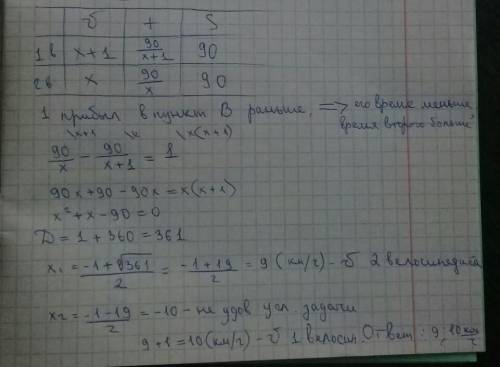 υ t S
1в x+1 90/(x+1) 90
2в x 90/x 90
1 прибыл в пункт В раньше, ⟹ его время меньше
время второго больше
\x+1 \x \x(x+1)
90/x - 90/(x+1) = 1
90x+90-90x=x(x+1)
x²+x-90=0
D=1+360=361
x₁ = (-1+√361)/2 = (-1+19)/2 = 9 (км/г) - υ 2 велосипедиста
x₂ = (-1-19)/2 = -10 - не удов усл. задачи
9+1=10 (км/г) - υ 1 велосип. Ответ: 9; 10 км/г